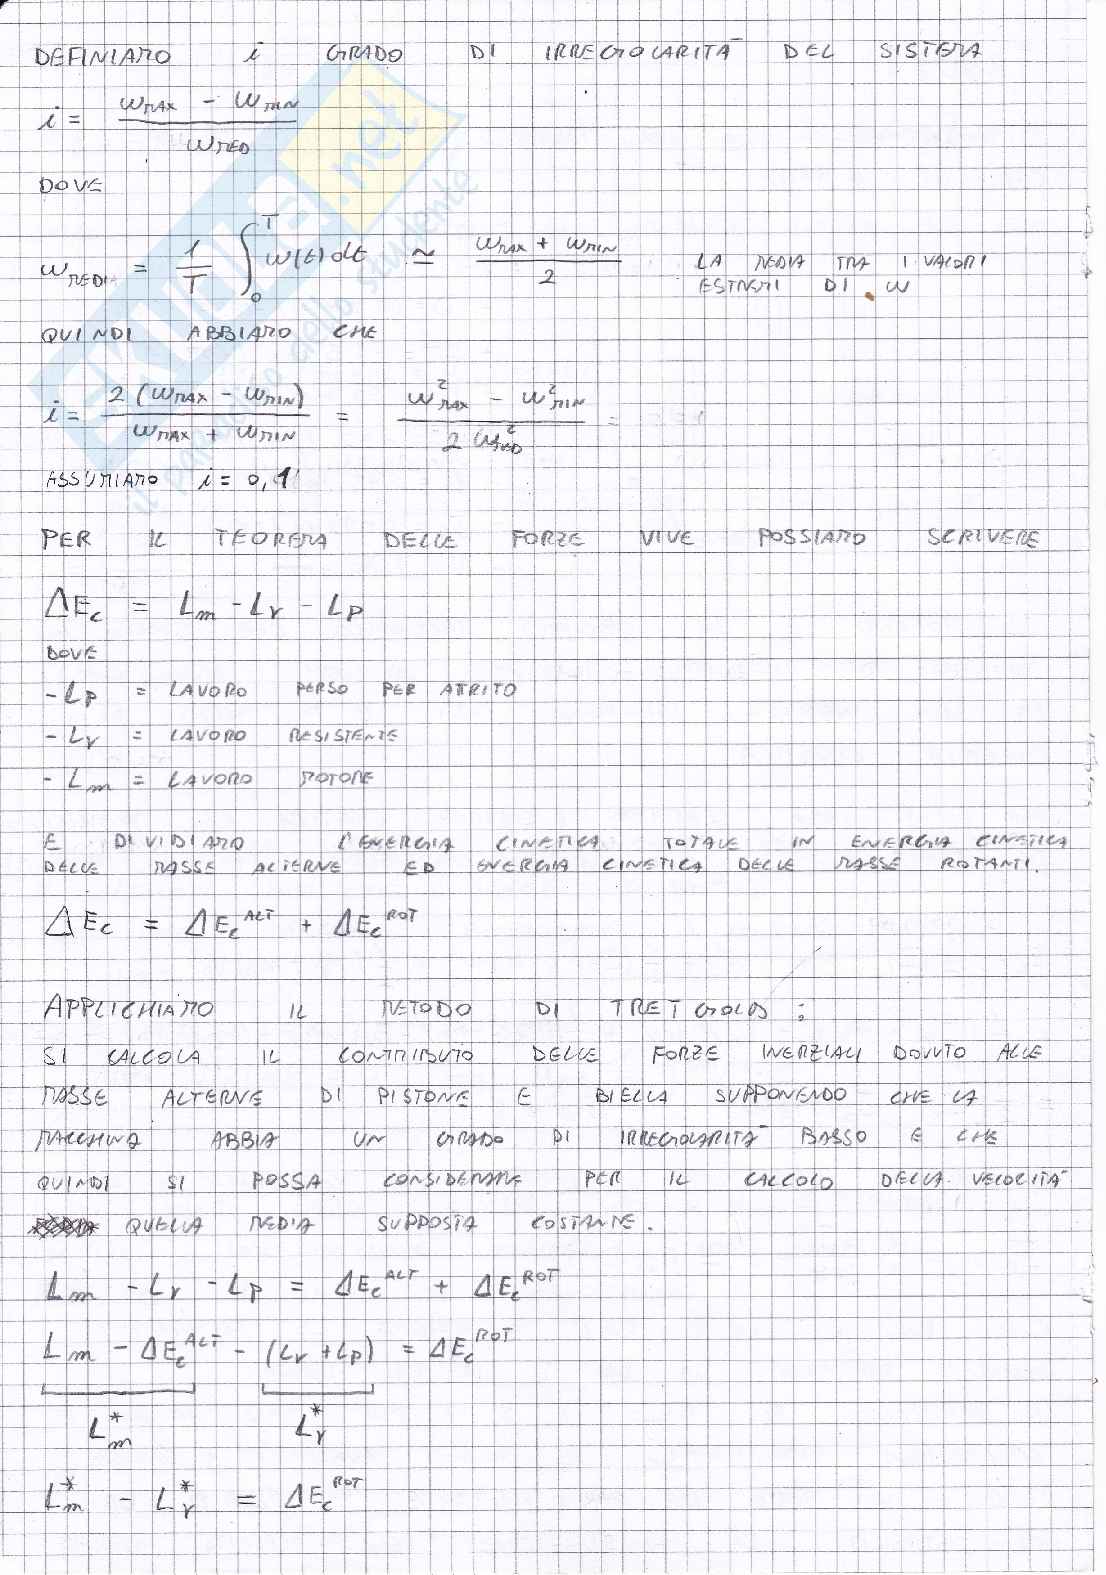 DEFINIAMO i GRADO DI IRREGOLARITÀ DEL SISTEMA
i = (ωMAX - ωMIN) / ωMED
DOVE
ωMEDIA = 1/T ∫₀ᵀ ω(t) dt ≃ (ωMAX + ωMIN) / 2 LA MEDIA TRA I VALORI
ESTREMI DI ω
QUINDI ABBIAMO CHE
i = 2 (ωMAX - ωMIN) / (ωMAX + ωMIN) = (ω²MAX - ω²MIN) / 2 ω²MED =
ASSUMIAMO i = 0,1
PER IL TEOREMA DELLE FORZE VIVE POSSIAMO SCRIVERE
ΔEc = Lm - Lr - Lp
DOVE
- Lp = LAVORO PERSO PER ATTRITO
- Lr = LAVORO RESISTENTE
- Lm = LAVORO MOTORE
E DIVIDIAMO L'ENERGIA CINETICA TOTALE IN ENERGIA CINETICA
DELLE MASSE ALTERNE ED ENERGIA CINETICA DELLE MASSE ROTANTI.
ΔEc = ΔEc^ALT + ΔEc^ROT
APPLICHIAMO IL METODO DI TRETGOLD :
SI CALCOLA IL CONTRIBUTO DELLE FORZE INERZIALI DOVUTO ALLE
MASSE ALTERNE DI PISTONE E BIELLA SUPPONENDO CHE LA
MACCHINA ABBIA UN GRADO DI IRREGOLARITÀ BASSO E CHE
QUINDI SI POSSA CONSIDERARE PER IL CALCOLO DELLA VELOCITÀ
QUELLA MEDIA SUPPOSTA COSTANTE.
Lm - Lr - Lp = ΔEc^ALT + ΔEc^ROT
Lm - ΔEc^ALT - (Lr + Lp) = ΔEc^ROT
L*m L*r
L*m - L*r = ΔEc^ROT